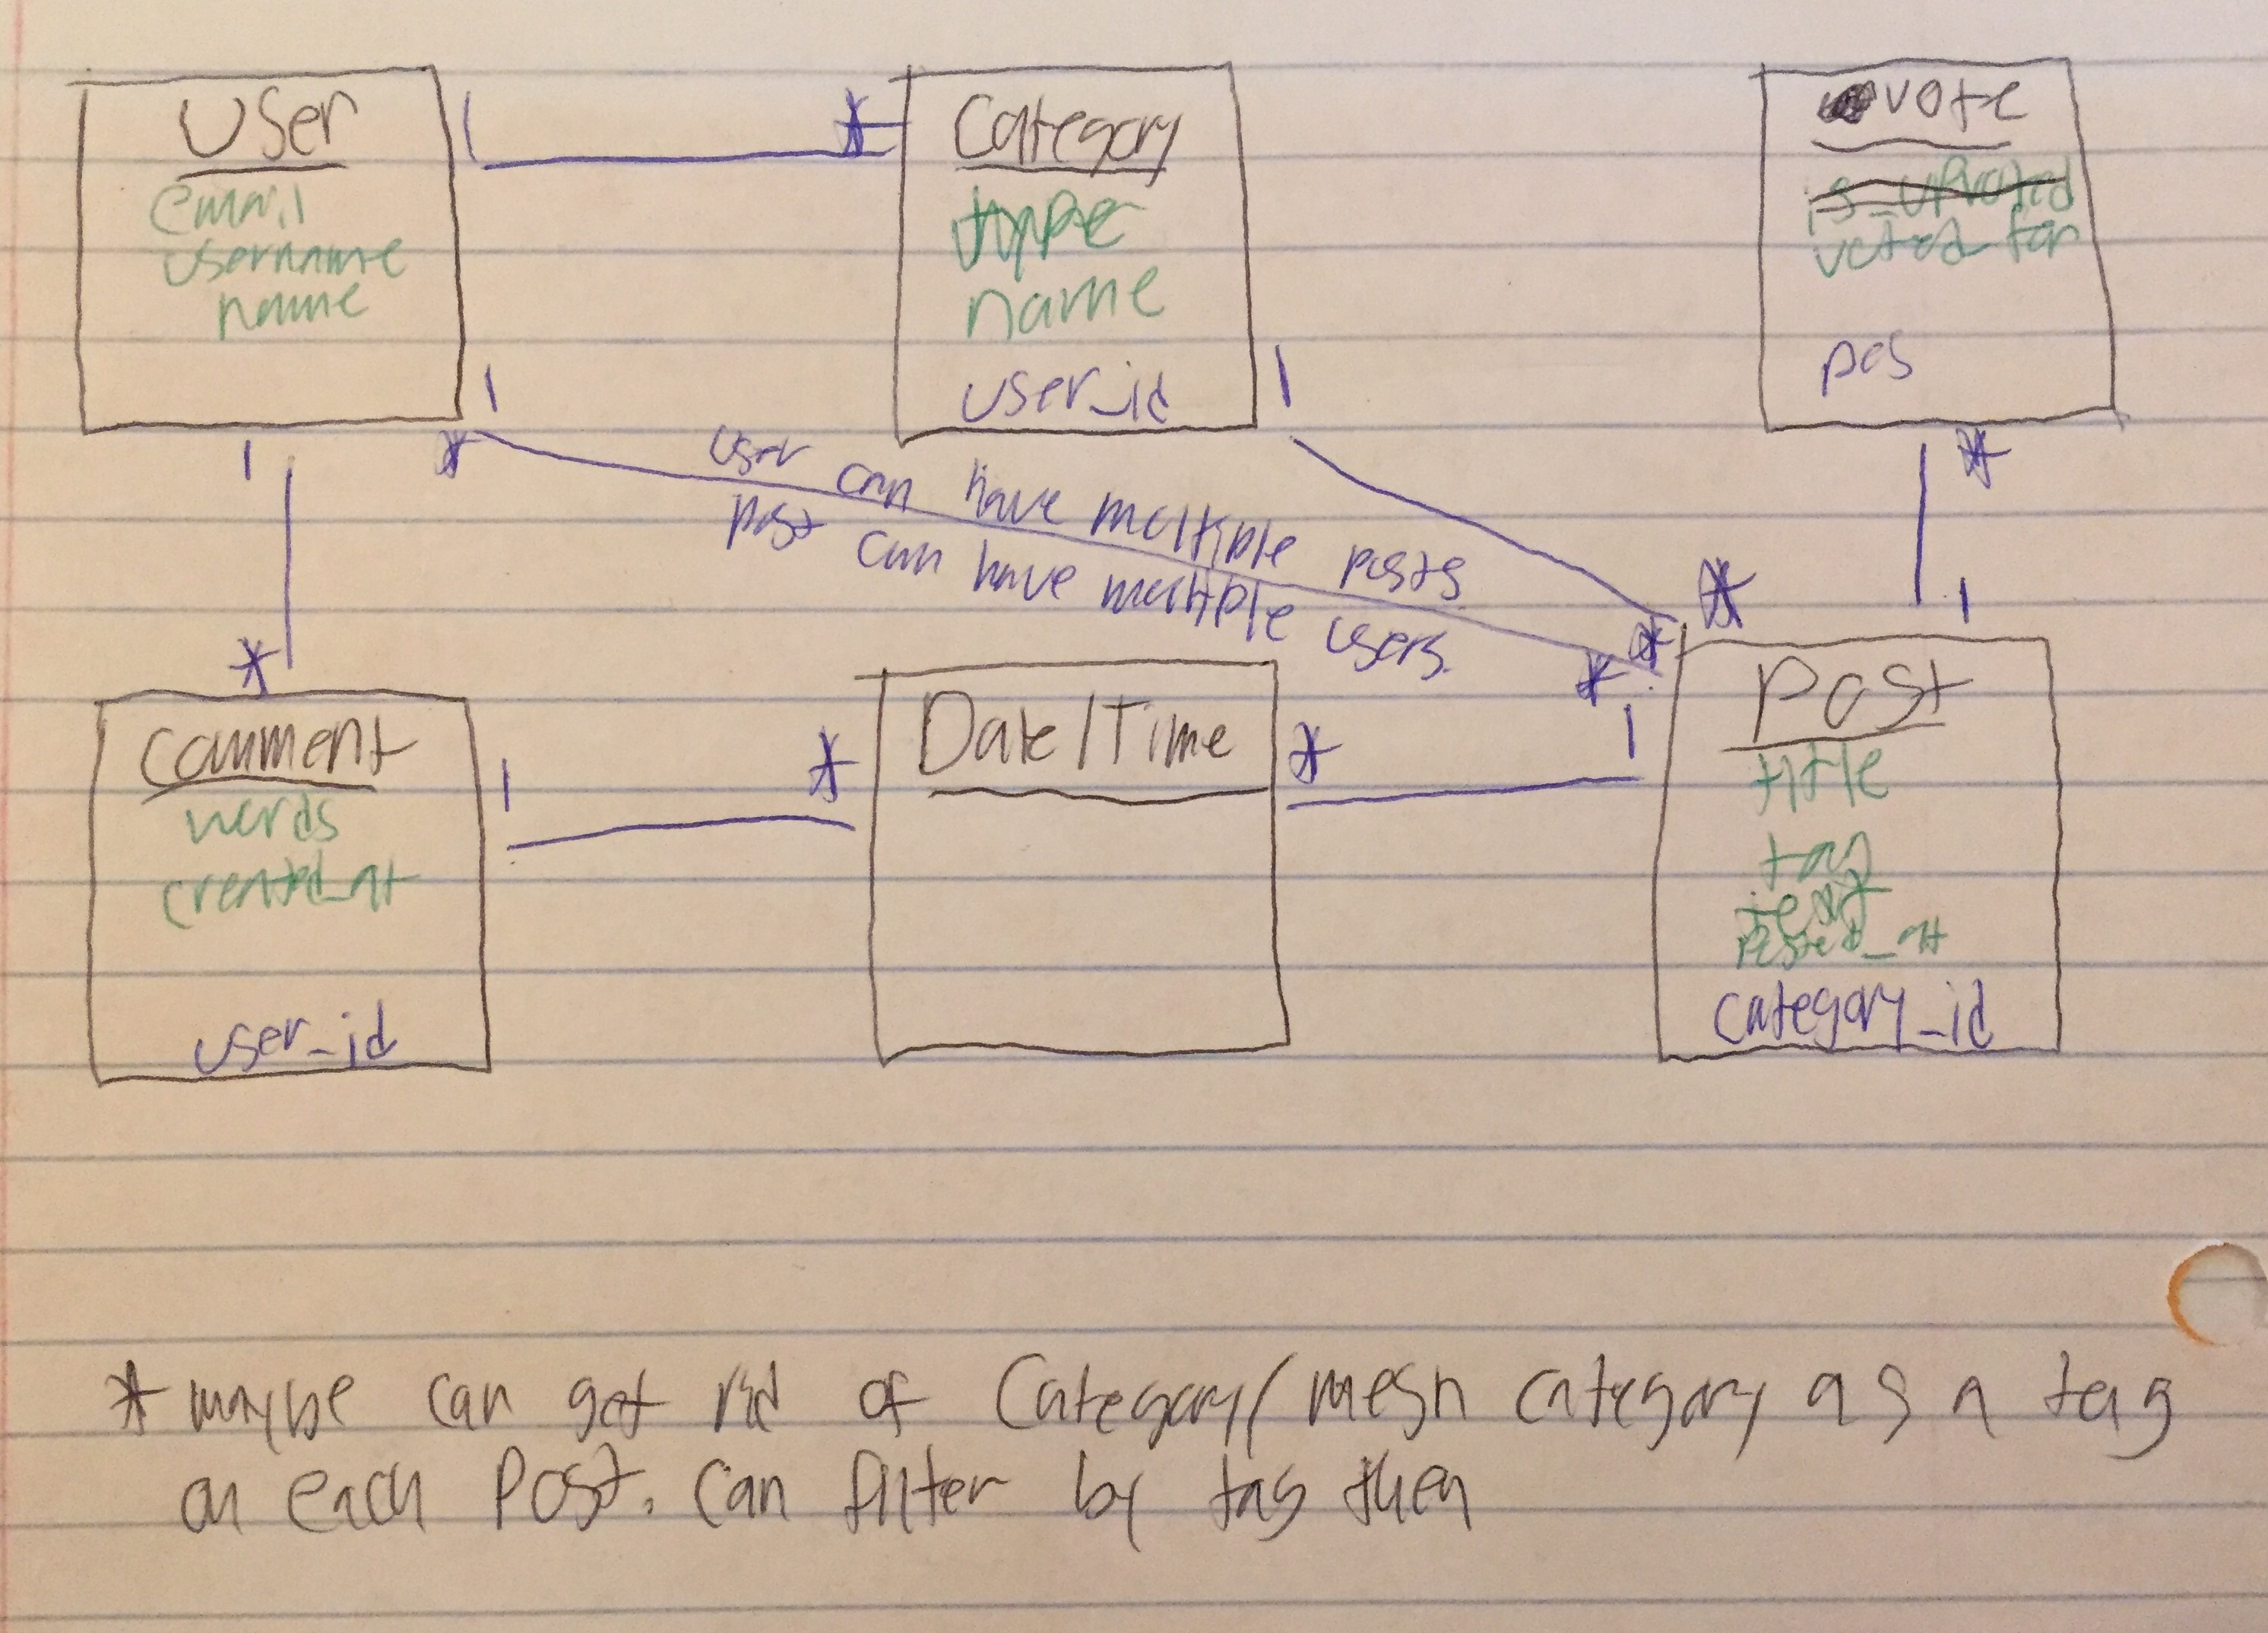 User
email
username
name
1
*
Category
type
name
user_id
vote
is_upvoted
voted_for
pos
1
1
1
*
*
user can have multiple posts
post can have multiple users.
*
*
*
*
1
*
comment
words
created_at
user_id
1
*
Date/Time
*
1
Post
title
tag
text
posted_at
category_id
* maybe can get rid of Category/mesh category as a tag
on each Post. Can filter by tag then